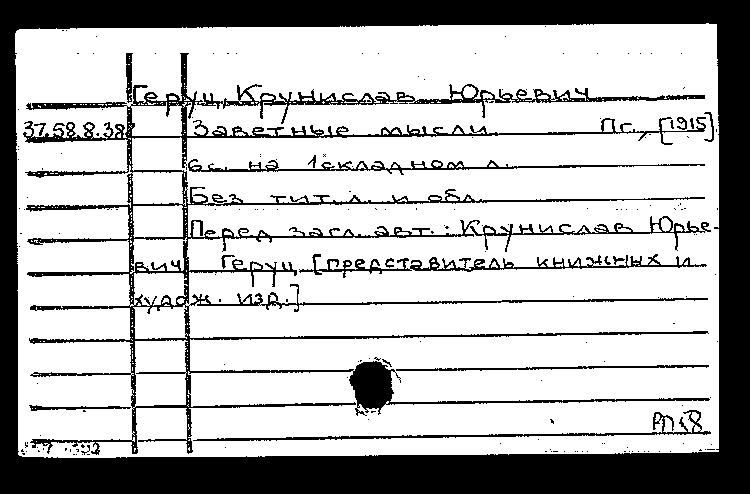 Геруц, Крунислав Юрьевич
37.58.8.38
Заветные мысли. Пг., [1915]
6 с. на 1 складном л.
Без тит. л. и обл.
Перед загл. авт.: Крунислав Юрье-
вич Геруц [представитель книжных и
худож. изд.]